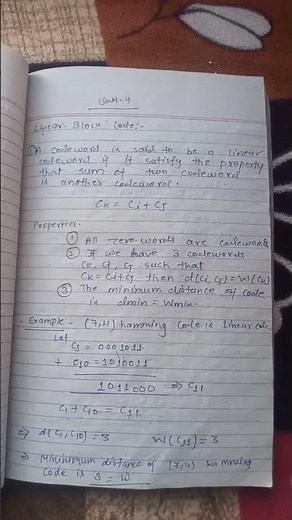 Unit-4
Linear Block Code:-
A codeword is said to be a linear
codeword if it satisfy the property
that sum of two codeword
is another codeword.
Ck = Ci + Cj
Properties
① All zero-words are codewords
② If we have 3 codewords
Ck, Ci, Cj such that
Ck = Ci + Cj then d(Ci, Cj) = W(Ck)
③ The minimum distance of code
is dmin = Wmin.
Example - (7,4) hamming code is linear code.
Let
C1 = 0001011
+ C10 = 1010011
1011000 ⇒ C11
C1 + C10 = C11.
⇒ d(C1, C10) = 3 W(C11) = 3
⇒ Minimum distance of (7,4) hamming
code is 3 = W